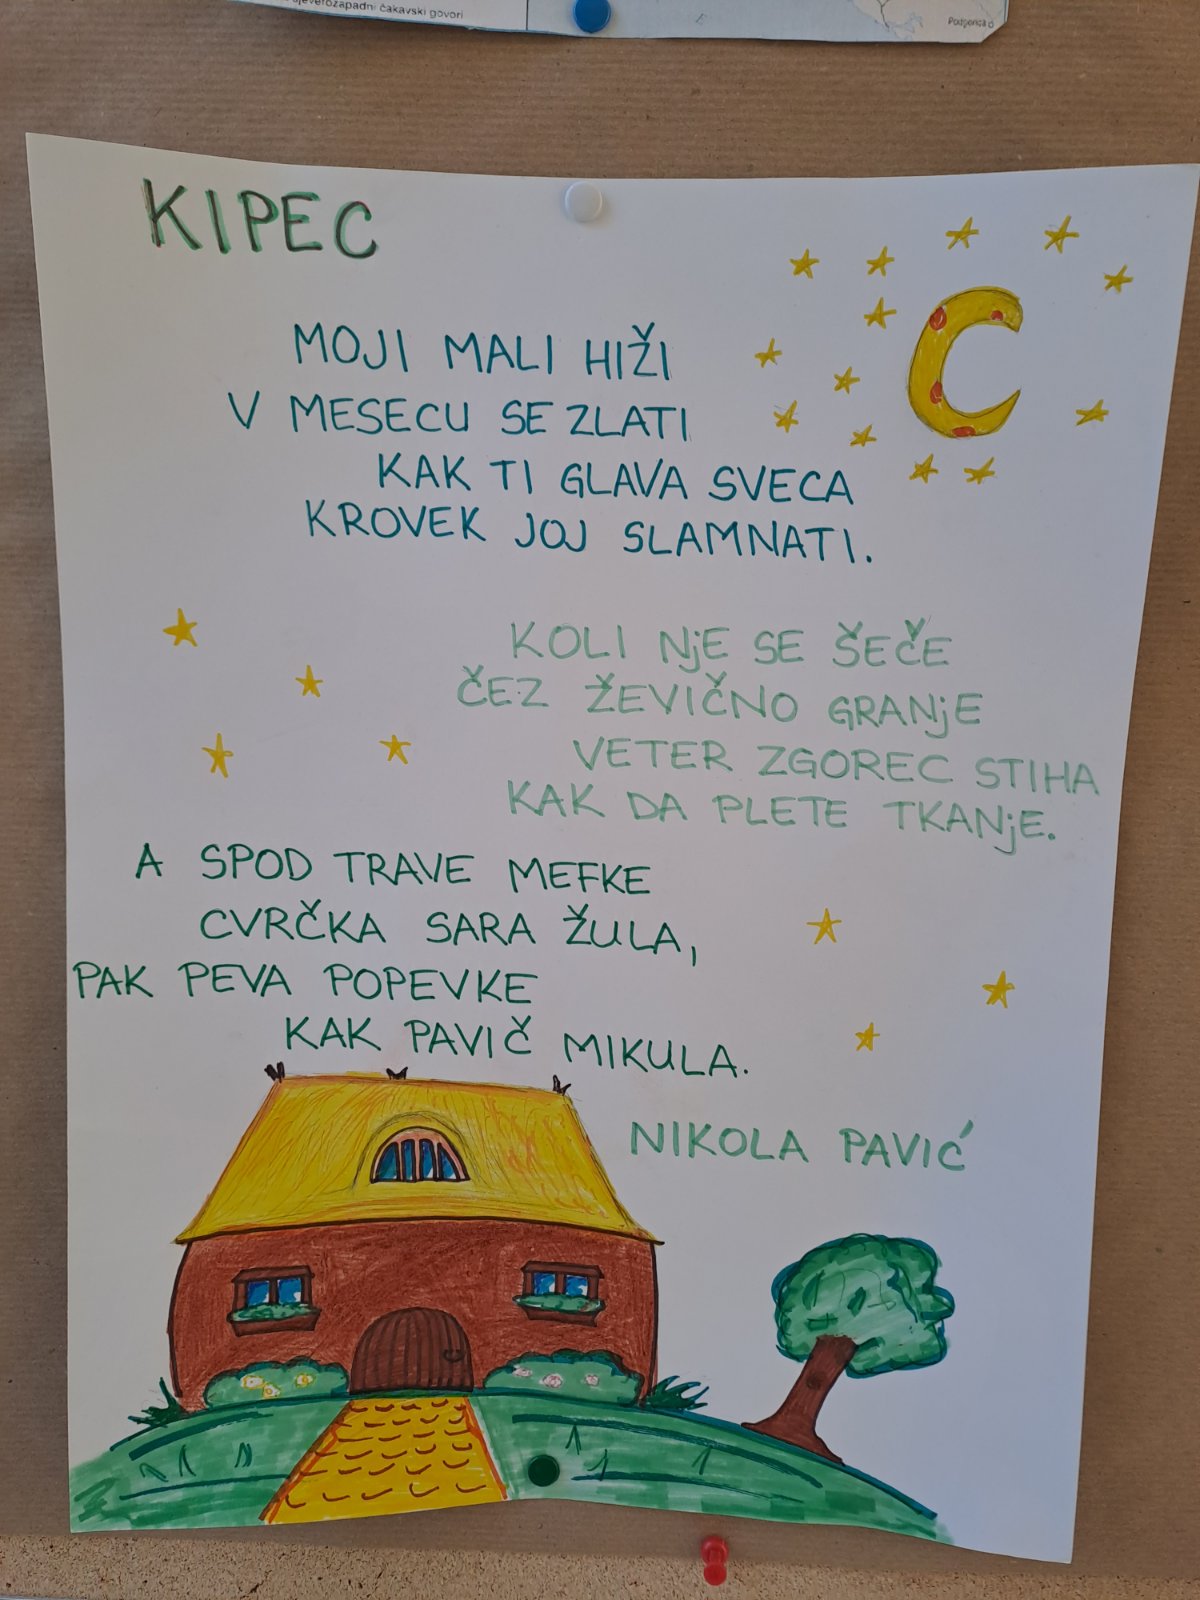 sjeverozapadni čakavski govori
Podgorica
KIPEC
MOJI MALI HIŽI
V MESECU SE ZLATI
KAK TI GLAVA SVECA
KROVEK JOJ SLAMNATI.
KOLI NjE SE ŠEČE
ČEZ ŽEVIČNO GRANjE
VETER ZGOREC STIHA
KAK DA PLETE TKANjE.
A SPOD TRAVE MEFKE
CVRČKA SARA ŽULA,
PAK PEVA POPEVKE
KAK PAVIČ MIKULA.
NIKOLA PAVIĆ